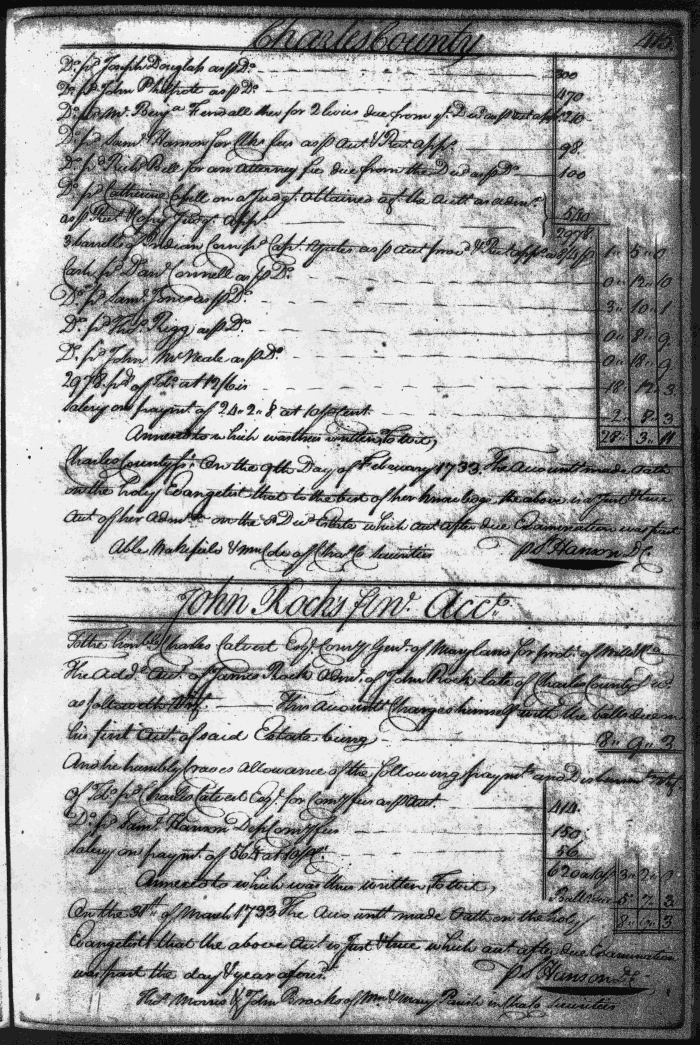 Charles County
Do. pd. Joseph Douglass as p Do. 300
Do. pd. John Philpote as p Do. 470
Do. pd. Mr. Benja. Fendall Sher for 2 levies due from ye. Decd as p Act app 210
Do. pd. Saml. Hanson for Clks fees as p Act & Rect. app. 98
Do. pd. Richd. Bell for an Attorney fee due from the Decd as p Do. 100
Do. pd. Catherine on a Judgt. obtained agt. the Actt as admx.
as p Rect. & Copy Judgt. App.
2978
3 barrells of Indian Corn pd. Capt. as p Act prov'd & Rect. app 1 " 5 " 0
Cash pd. Danl. Connell as p Do. 0 " 12 " 0
Do. pd. Saml. Jones as p Do. 3 " 10 " 1
Do. pd. Thos. Rigg as p Do. 0 " 8 " 9
Do. pd. John McNeale as p Do. 0 " 18 " 9
2978 pds. of Tobo. at 12/6 is 18 " 12 " 3
Salery on paymt. of 24 " 2 " 8 at 10 p Cent 2 " 8 " 3
28 " 3 " 11
Annexed to which was thus written, To wit,
Charles County ss. On the 9th Day of February 1733 The Accountt made Oath
on the holy Evangelist that to the best of her knowledge the above is a Just & true
Act of her adm on the sd Decd Estate which act after due Examination was past
Able Wakefield & of Cha. Co Securities p S. Hanson DC
John Rocks finl. Acct.
To the honble. Charles Calvert Esqr. Comry. Genl. of Maryland for probt. of Wills &c
The Add. Act. of James Rock Admr. of John Rock late of Charles County Decd
as followeth Vizt. This Accountt Charges himself with the ballc due on
his first Act. of said Estate being 8 " 9 " 3
And he humbly Craves allowance of the following paymts and Disbursmts Vizt.
Of Tobo. pd. Charles Calvert Esqr. for Comrys fees as p Act 414
Do. pd. Saml. Hanson Depty Comrys fees 150
Salery on paymt. of 564 at 10 p Ct. 56
620 3 " 2 " 0
Ballce due 5 " 7 " 3
Annexed to which was thus written, To wit,
8 " 9 " 3
On the 30th of March 1733 The Accountt made Oath on the holy
Evangelist that the above Act is Just & true which act after due Examination
was past the day & year aforesd. p S Hanson DC
Thos. Morris & John Brooks of Wm & Mary Parish in Chas Co Securities